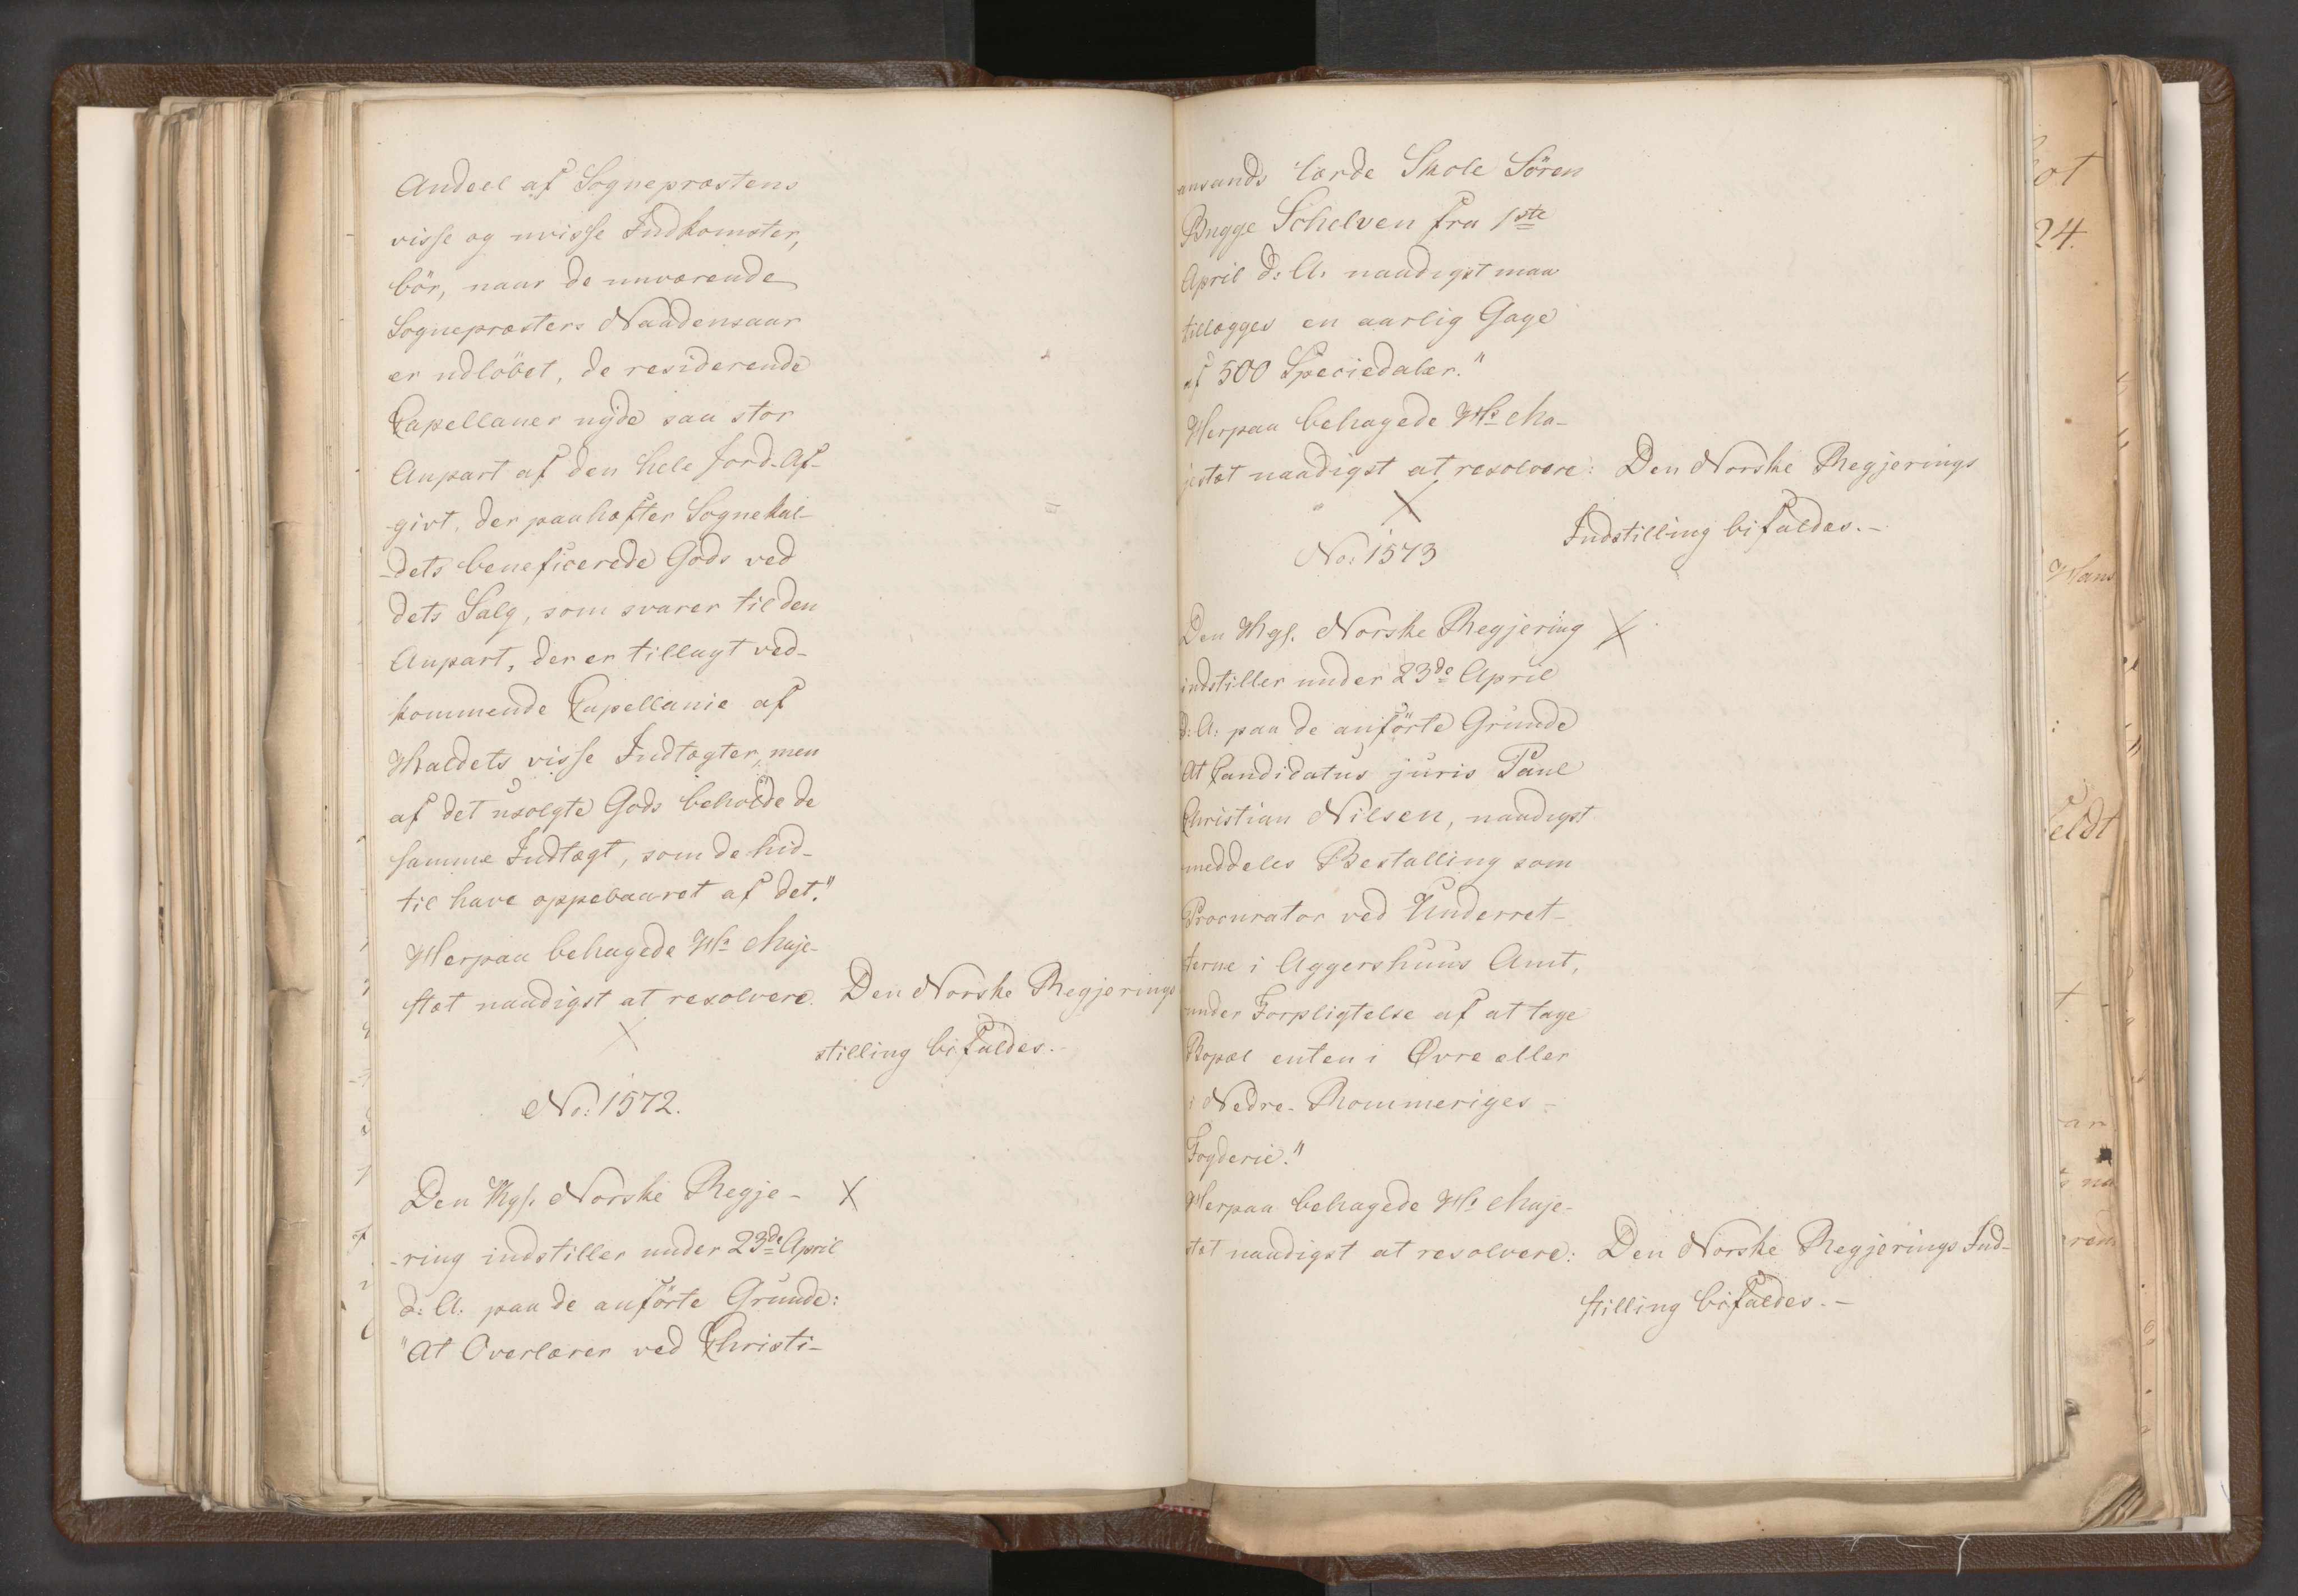 Andeel af Sognepræstens
visse og uvisse Indkomster,
bör, naar de nuværende
Sognepræsters Naadensaar
er udlöbet, de residerende
Capellaner nyde saa stor
Anpart af den hele Jord-Af-
givt, der paahæfter Sognekal-
-dets beneficerede Gods ved
dets Salg, som svarer til den
Anpart, der er tillagt ved-
kommende Capellanie af
Kaldets visse Indtægter, men
af det usolgte Gods beholde de
samme Indtægt, som de hid-
til have oppebaaret af det."
Herpaa behagede Hs Maje-
stæt naadigst at resolvere. Den Norske Regjerings
stilling bifaldes.-
No: 1572.
Den Kgl. Norske Regje-
-ring indstiller under 23de April
d: A: paa de anförte Grunde:
"At Overlærer ved Christi-
ansands lærde Skole Sören
Bugge Schelven fra 1ste
April d: A: naadigst maa
tillægges en aarlig Gage
af 500 Speciedaler."
Herpaa behagede Hs Ma-
jestæt naadigst at resolvere: Den Norske Regjerings
Indstilling bifaldes.-
No: 1573
Den Kgl. Norske Regjering
indstiller under 23de April
d: A: paa de anförte Grunde
"At Candidatus juris Paul
Christian Nilsen, naadigst
meddeles Bestalling som
Procurator ved Underret-
terne i Aggershuus Amt,
under Forpligtelse af at tage
Bopæl enten i Øvre eller
i Nedre-Rommeriges-
Fogderie."
Herpaa behagede Hs Maje-
stæt naadigst at resolvere: Den Norske Regjerings Ind-
stilling bifaldes.-
24.